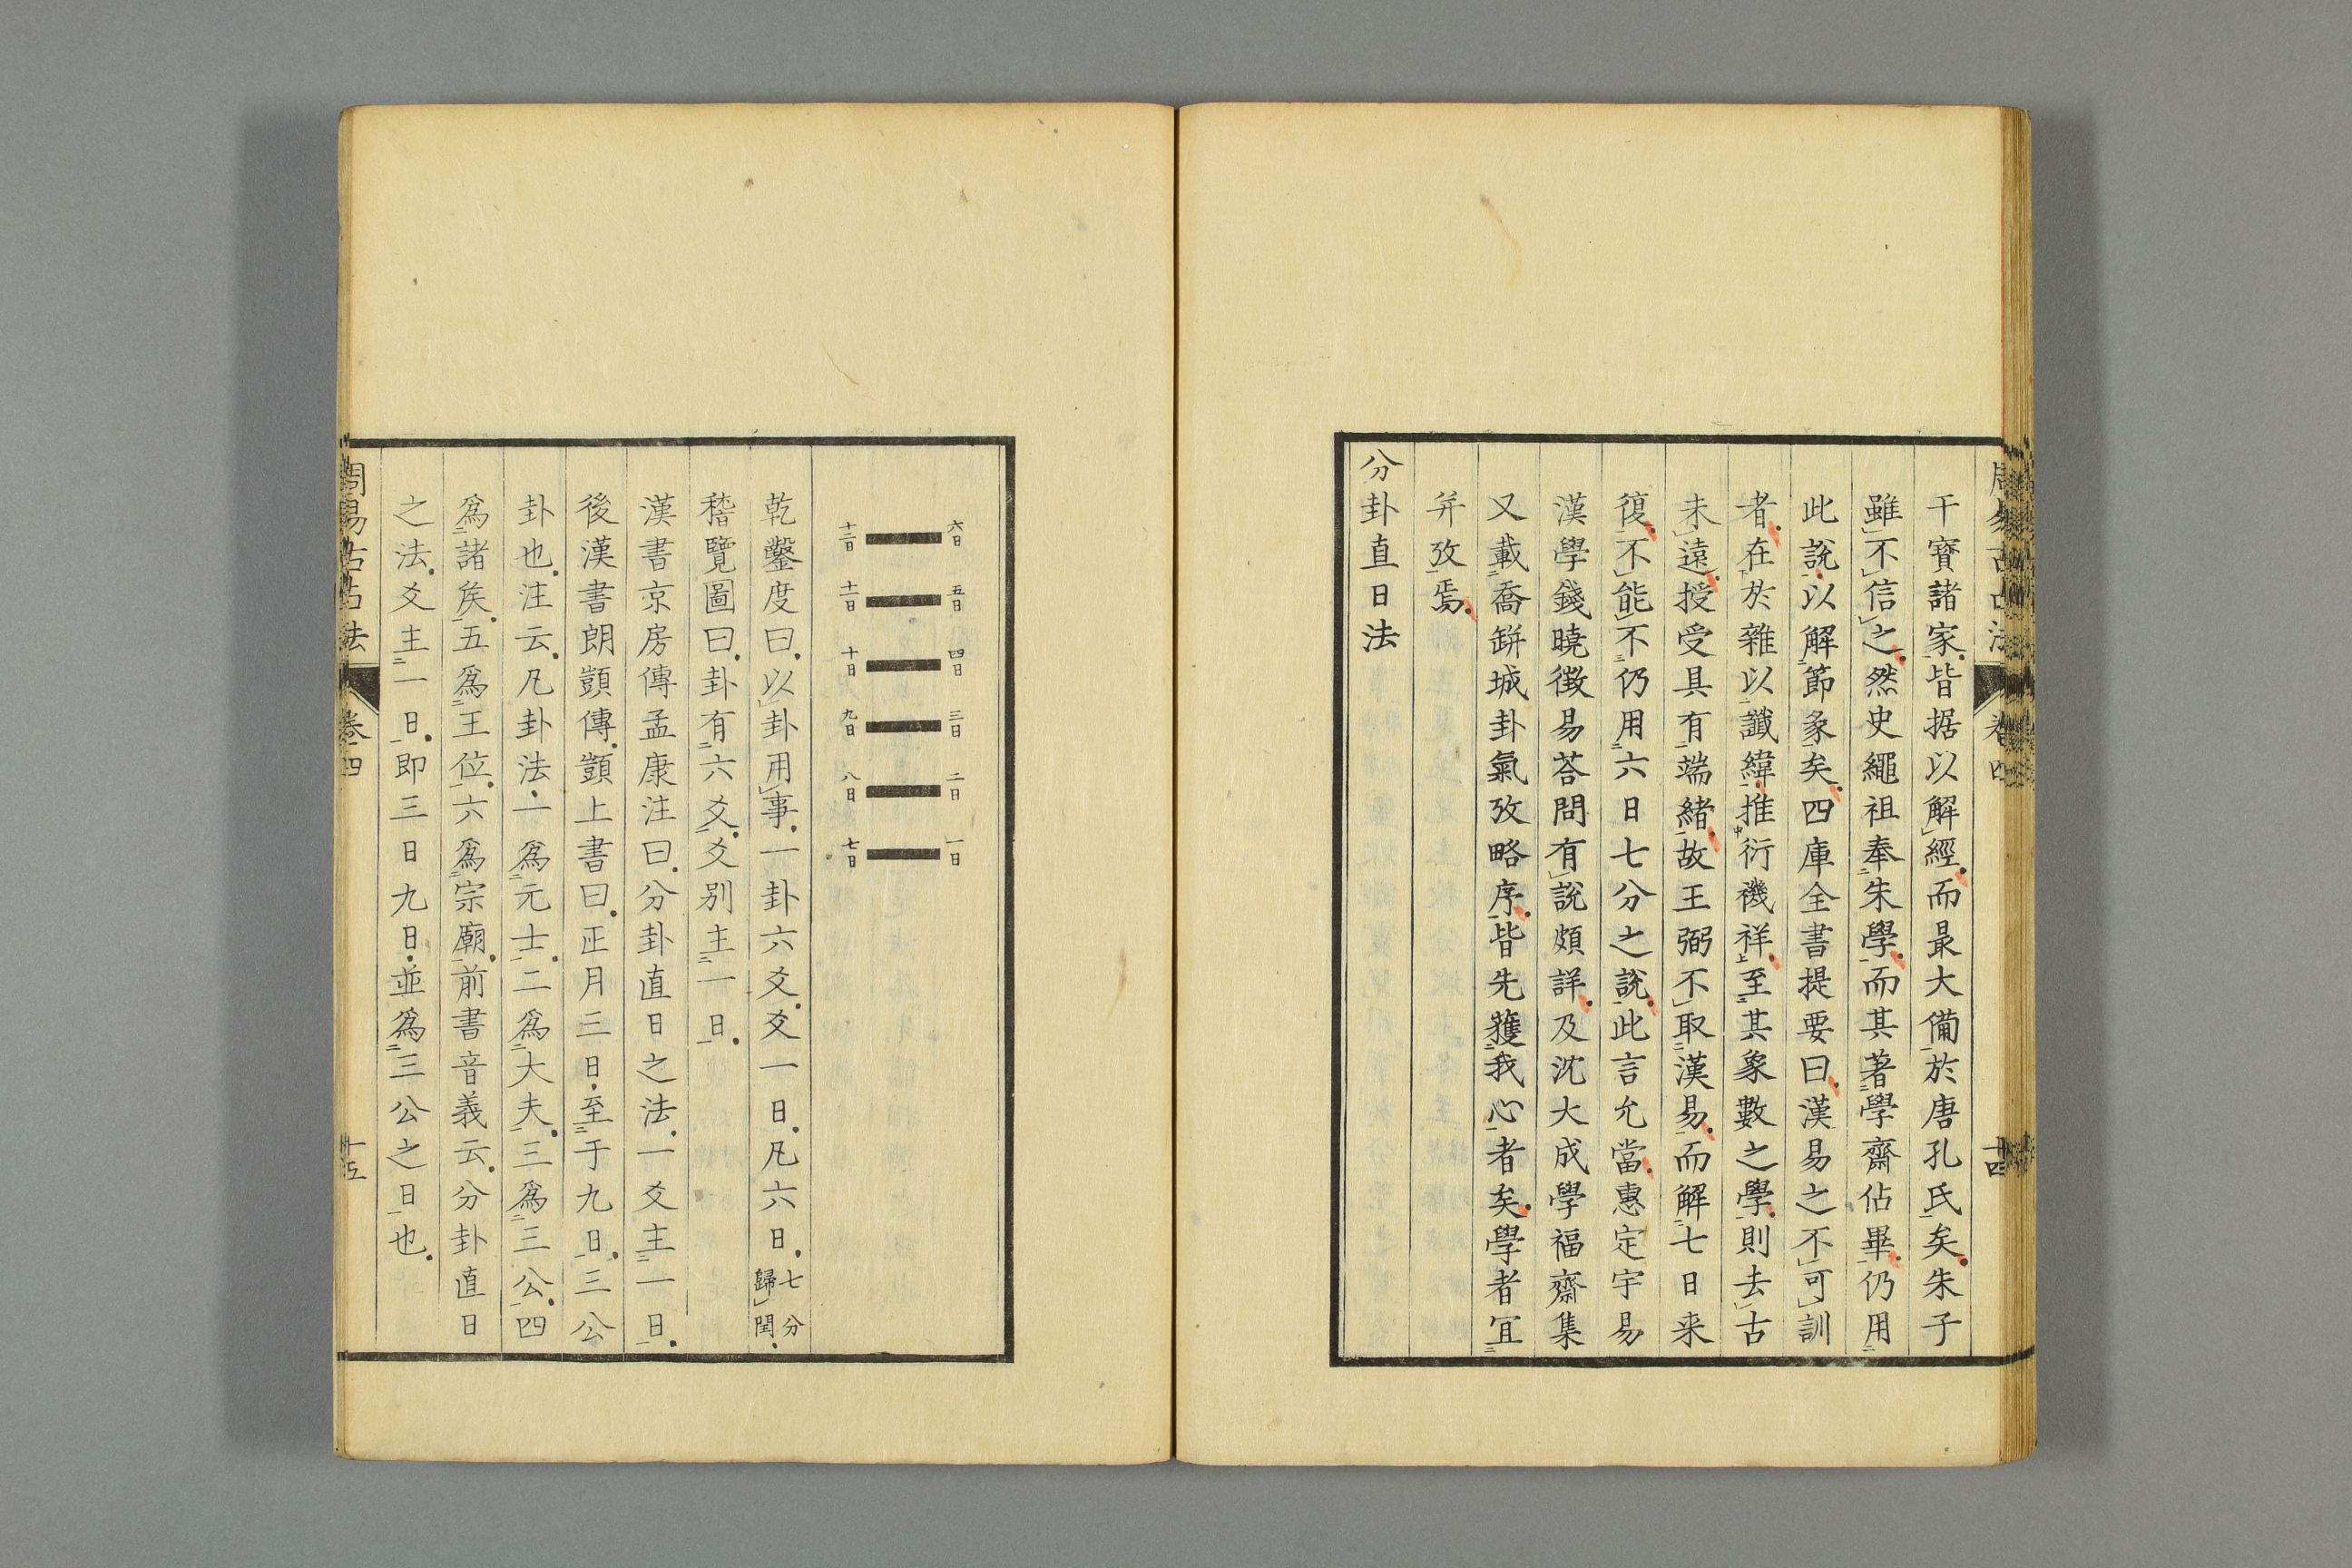 干寶諸家皆据以解經而最大備於唐孔氏矣朱子
雖不信之然史繩祖奉朱學而其著學齋佔畢仍用
此說以解節彖矣四庫全書提要曰漢易之不可訓
者在於雜以讖緯推衍禨祥至其象數之學則去古
未遠授受具有端緒故王弼不取漢易而解七日来
復不能不仍用六日七分之說此言允當惠定宇易
漢學錢曉徴易荅問有說頗詳及沈大成學福齋集
又載喬缾城卦氣攷略序皆先獲我心者矣學者宜
并攷焉
分卦直日法
六日 五日 四日 三日 二日 一日
十二日 十一日 十日 九日 八日 七日
乾鑿度曰以卦用事一卦六爻爻一日凡六日七分歸閏
稽覽圖曰卦有六爻爻别主一日
漢書京房傳孟康注曰分卦直日之法一爻主一日
後漢書朗顗傳顗上書曰正月三日至于九日三公
卦也注云凡卦法一爲元士二爲大夫三爲三公四
爲諸矦五爲王位六爲宗廟前書音義云分卦直日
之法爻主一日即三日九日並爲三公之日也
周易古占法 卷四 十五